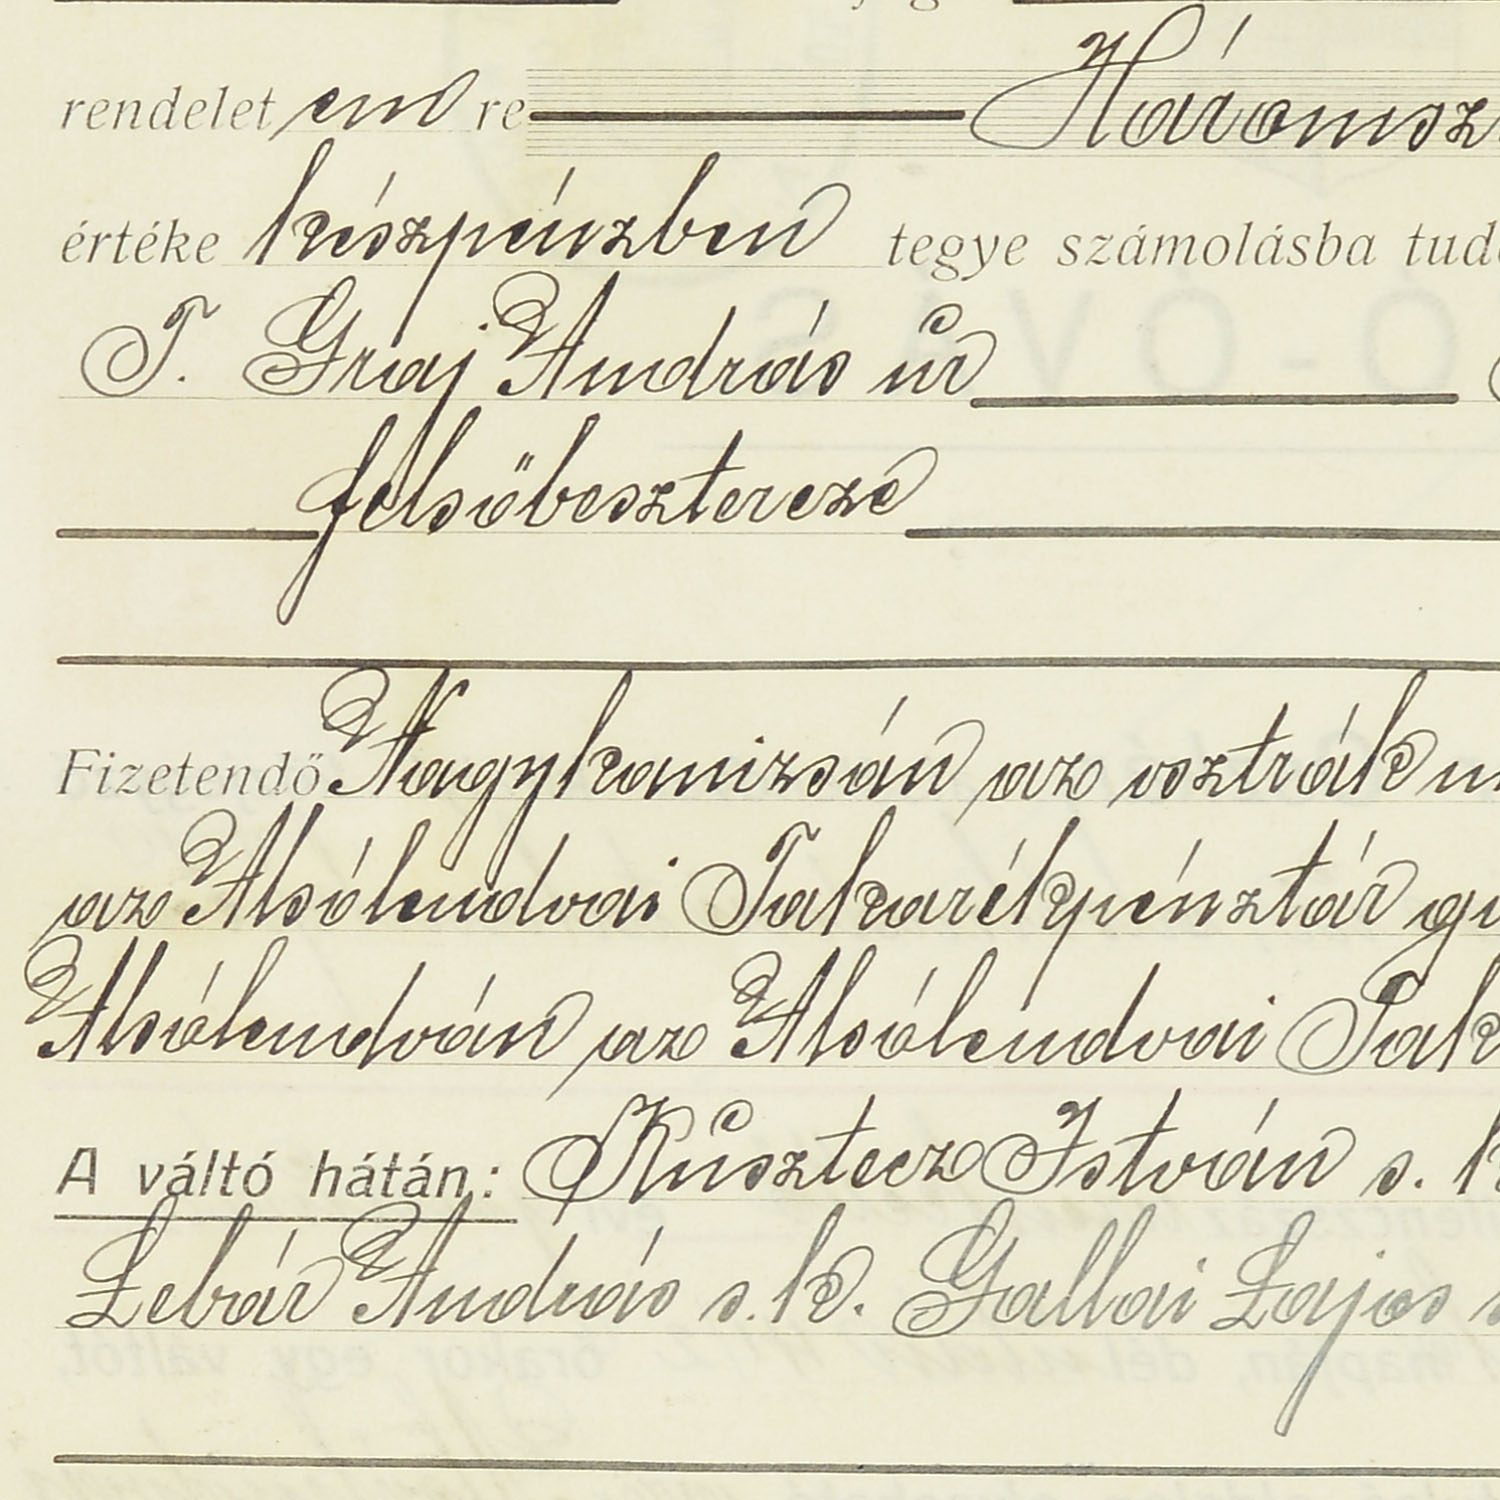 rendelet em re Háromsz
értéke készpénzben tegye számolásba tud
T. Graj András úr
felsőbesztercze
Fizetendő Nagykanizsán az osztrák m
az Alsólendvai Takarékpénztár
Alsólendván az Alsólendvai Tak
A váltó hátán: Kúsztecz István s. k
Lebár András s. k. Gallai Lajos s